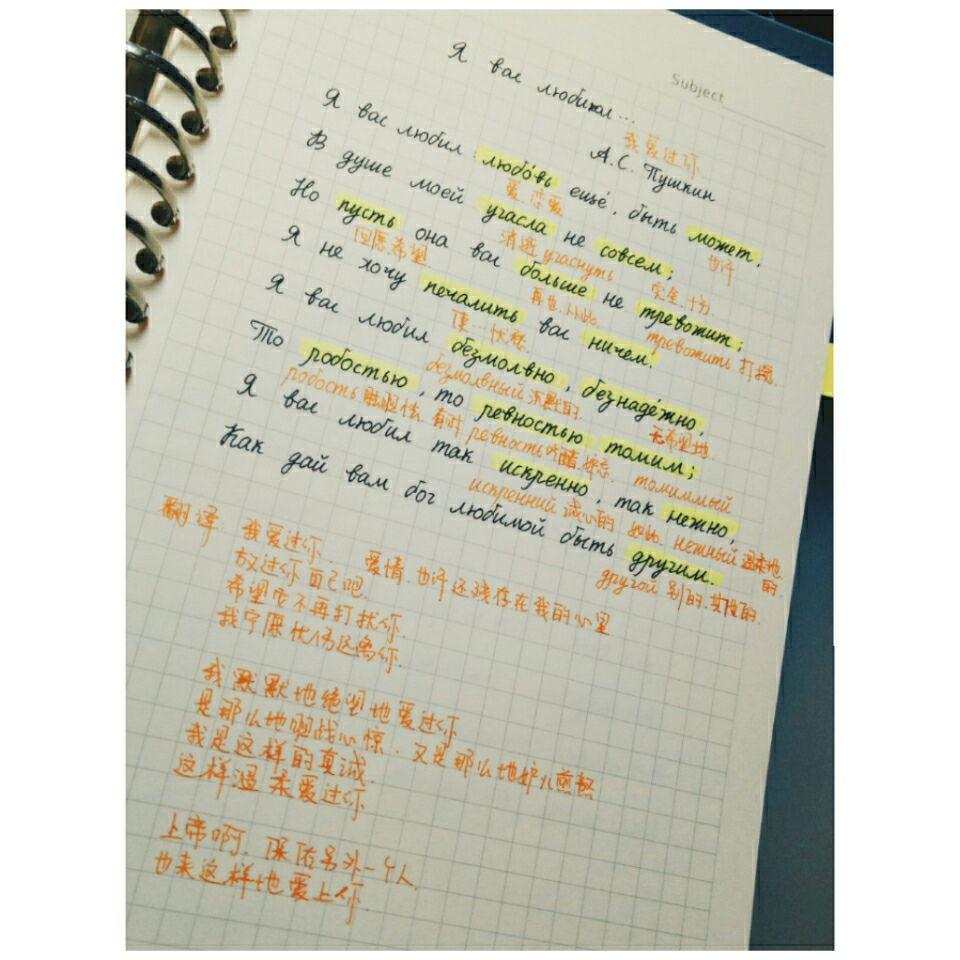 Subject
Я вас любил...
我爱过你
А.С. Пушкин
Я вас любил: любовь ещё, быть может,
爱.恋爱 也许
В душе моей угасла не совсем;
消逝 угаснуть 完全.十分
Но пусть она вас больше не тревожит;
但愿希望 再也 тревожить 打扰.
Я не хочу печалить вас ничем.
使…忧愁.
Я вас любил безмолвно, безнадёжно,
безмолвный 沉默的. 无希望地.
То робостью, то ревностью томим;
робость 胆怯. 有时 ревность 吃醋.妒忌. томиммый
Я вас любил так искренно, так нежно,
искренний 诚心的 нежный 温柔地.的.
Как дай вам бог любимой быть другим.
другой 别的.其他的.
翻译: 我爱过你. 爱情.也许还残存在我的心里
放过你自己吧.
希望它不再打扰你.
我宁愿忧伤远离你.
我默默地绝望地爱过你
是那么地胆战心惊.又是那么地妒火煎熬
我是这样的真诚.
这样温柔爱过你
上帝啊.保佑另外一个人.
也来这样地爱上你.